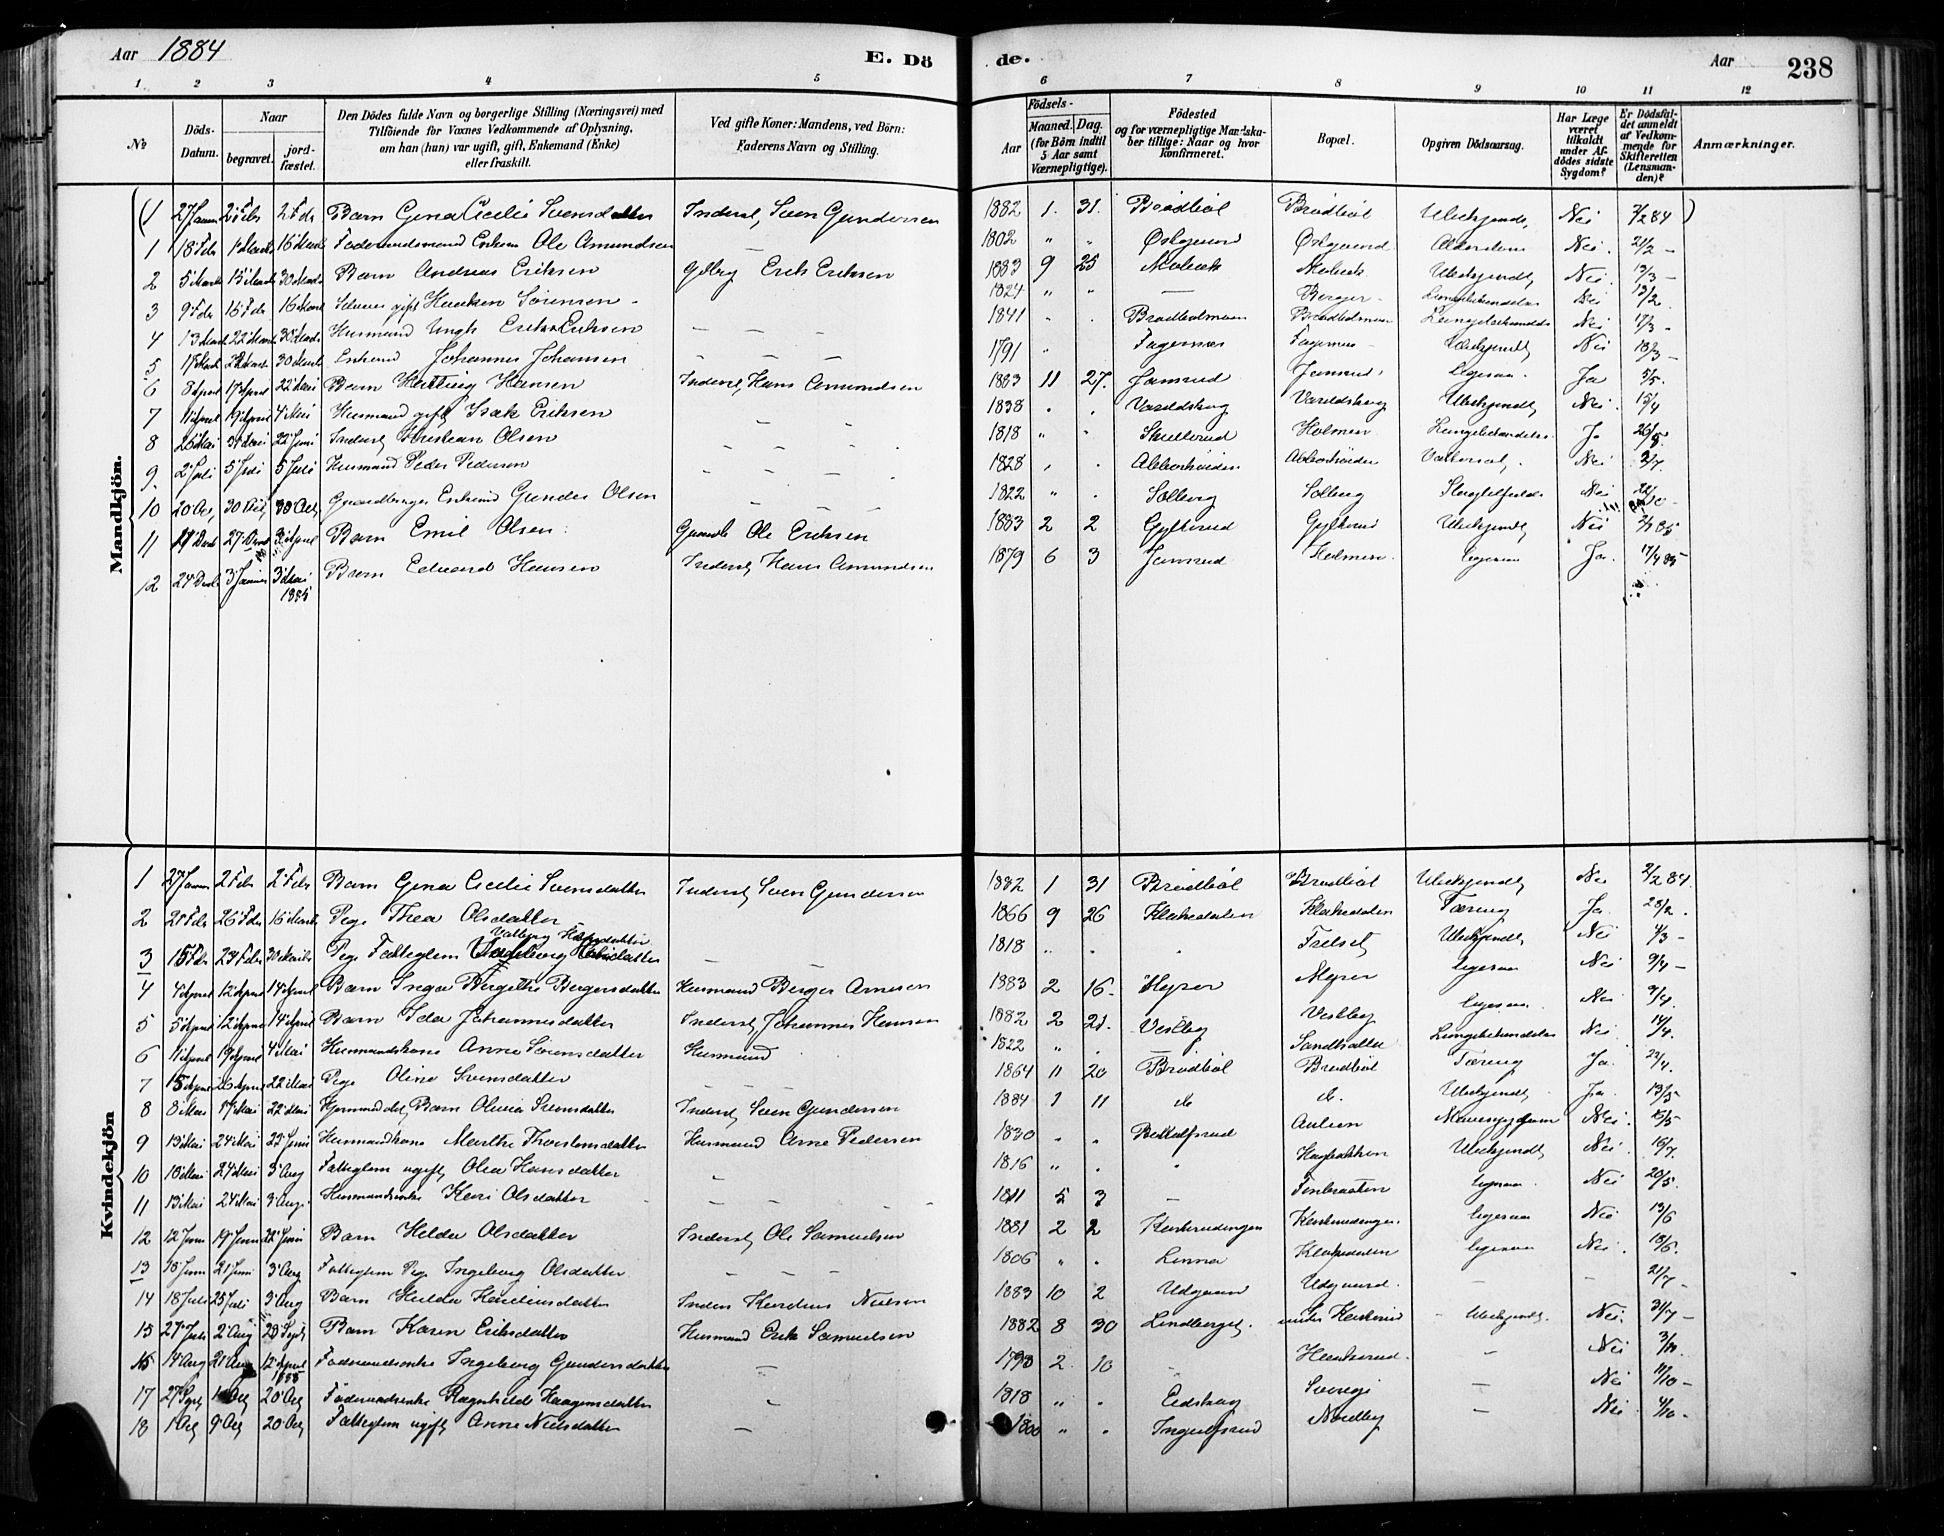 Aar 1884 E. Dö de. Aar 238
1 2 3 4 5 6 7 8 9 10 11 12
№ Döds-Datum. Naar begravet. jordfæstet. Den Dödes fulde Navn og borgerlige Stilling (Næringsvei) med Tilföiende for Voxnes Vedkommende af Oplysning, om han (hun) var ugift, gift, Enkemand (Enke) eller fraskilt. Ved gifte Koner: Mandens, ved Börn: Faderens Navn og Stilling. Födsels- Aar Maaned. Dag. (for Börn indtil 5 Aar samt Værnepligtige). Födested og for værnepligtige Mandskaber tillige: Naar og hvor konfirmeret. Bopæl. Opgiven Dödsaarsag. Har Læge været tilkaldt under Afdödes sidste Sygdom? Er Dödsfaldet anmeldt af Vedkommende for Skifteretten (Lensmanden)? Anmærkninger.
Mandkjön.
(1 27 Januar 2 Febr 2 Febr Barn Gina Cecilie Svensdatter Inderst, Sven Gundersen 1882 1. 31. Brødbøl Brødbøl Ubekjendt Nei 2/2 84 )
1 18 Febr 1 Marts 16 Marts Enkem Ole Amundsen — 1802 " " Østgaard Østgaard Alderdom Nei. 21/2 —
2 5 Marts 15 Marts 30 Marts Barn Andreas Eriksen Gdbrg Erik Eriksen 1883 9 25 Mobæk Mobæk Ubekjendt Nei. 13/3 —
3 9 Febr 16 Febr 16 Marts gift Haaken Sörensen — 1824 " " — Berger Lungebetændelse Nei 13/2.
4 13 Marts 22 Marts 30 Marts Husmand Ungk. Erik Eriksen — — 1841 " . Brødholmen Brødholmen Lungebetændelse Nei 17/3 —
5 17 Marts 30 Marts Enkem Johannes Johansen — — — 1791 " Fagernæs Fagernæs Ubekjendt Nei 18/3 —
6 8 April 17 April 22 Mai Barn Hartvig Hansen Inderst, Hans Amundsen 1883 11 27. Jamrud Jamrud. Ligesaa. Ja 5/5.
7 11 April 19 April 4 Mai Husmand gift Isak Eriksen — — 1838 . . Vareldskog Vareldskog Ubekjendt Nei. 15/4
8 26 Mai 31 Mai 22 Juni Inderst, Kristian Olsen — — 1818 " . Skullerud Holmen Lungebetændelse Ja 26/5.
9. 2 Juli 5 Juli 5 Juli Husmand Peder Pedersen — — — 1828 . . Abborhøiden Abborhøiden Vattersot, Nei 2/7
10 20 Oct, 30 Oct, 30 Oct, Gaardbruger Enkem Gunder Olsen — — — 1822 " . Solberg Solberg Slagtilfælde Nei 22/10
11 17 Decbr 27 Decbr 3 April Barn Emil Olsen. Gaardb Ole Eriksen 1883 2 2 Gylterud Gylterud Ubekjendt Nei 2/1 85
12 24 Decbr 3 Januar 3 Mai 1885 Barn Edvard Hansen Inderst, Hans Amundsen 1879 6 3 Jamrud Holmen. Ligesaa Ja. 17/4 85
Kvindekjön
1 27 Januar 2 Febr 2 Febr Barn Gina Cecilie Svensdatter Inderst, Sven Gundersen 1882 1 31 Brødbøl Brødbøl Ubekjendt Nei 2/2 84
2 21 Febr 26 Febr 16 Marts Pige Thea Olsdatter — 1866 9 26 Klokkedalen Klokkedalen Tæring Ja. 23/2.
3 15 Febr 23 Febr 30 Marts Pige Fattiglem — — 1818 . . . Trelset Ubekjendt Nei 4/3 —
4 4 April 12 April 14 April Barn Inga Bergitte Bergersdatter Husmand Berger Arnesen 1883 2 16. Myrer Myrer Ligesaa Nei 9/4 —
5 5 April 12 April 14 April Barn Ida Johannesdatter Inderst, Johannes Hansen 1882 2 21. Vestby Vestby Ligesaa. Nei 9/4.
6 11 April 19 April 4 Mai Husmandskone Anne Sörensdatter Husmand 1822 " . — Lungebetændelse Nei. 14/4.
7 15 April 26 April 22 Mai Pige Oline Svensdatter — — — 1864 11 20 Brødbøl Brødbøl Tæring Ja. 22/4.
8 8 Mai 17 Mai 22 Mai Barn Olivia Svensdatter Inderst, Sven Gundersen 1884 1 11 do do. Ubekjendt Ja. 13/5
9 19 Mai 24 Mai 22 Juni Husmandkone Marthe Thorstensdatter Husmand Arne Pedersen 1830 " " Aulien Mavesygdom Nei. 15/5
10 10 Mai 24 Mai 3 Aug Fattiglem ugift Olea Hansdatter — 1816 " . . Ubekjendt Nei 16/7.
11 13 Mai 24 Mai 3 Aug. Husmandsenke Kari Olsdatter — — 1811 5 3 — Finbraaten Ligesaa Nei 20/5.
12 12 Juni 19 Juni 22 Juni Barn Helda Olsdatter Inderst, Ole Samuelsen 1881 2 2 Ligesaa Nei 13/6
13 18 Juni 21 Juni 3 Aug Fattiglem Pige Ingeborg Olsdatter — — — 1806 " . Linna Klokkedalen Ligesaa Nei. 18/6.
14 18 Juli 25 Juli 3 Aug Barn Hilda Inders Nielsen 1883 10 2 Udgaard Udgaard. — — 21/7 —
15 27 Juli 2 Aug 23 Septr Barn Karen Eriksdatter Husmand Erik Samuelsen 1882 8 30 Lindberget. under Ubekjendt. Nei. 31/7 —
16 14 Aug 21 Aug 12 April 1885 Foderaadsenke Ingeborg Gundersdatter — 1798 2. 10 . — Nei
17 27 Septr Oct 20 Oct Foderaadsenke Ragnhild Haagensdatter — 1818 " . Eidskog Sverige — Nei 11/10 —
18 1 Oct 9 Oct 20 Oct Fattiglem ugift Anne Nielsdatter — 1800 " . Ingulfsrud Nordby — Nei. 4/10 —